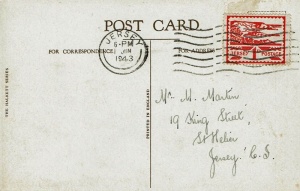 POST CARD.
FOR CORRESPONDENCE
FOR ADDRESS
JERSEY
6-PM
JN
1943
JERSEY POSTAGE
THE HAGARTY SERIES
PRINTED IN ENGLAND
Mr. M. Martin
19 King Street,
St Helier
Jersey. C.I.